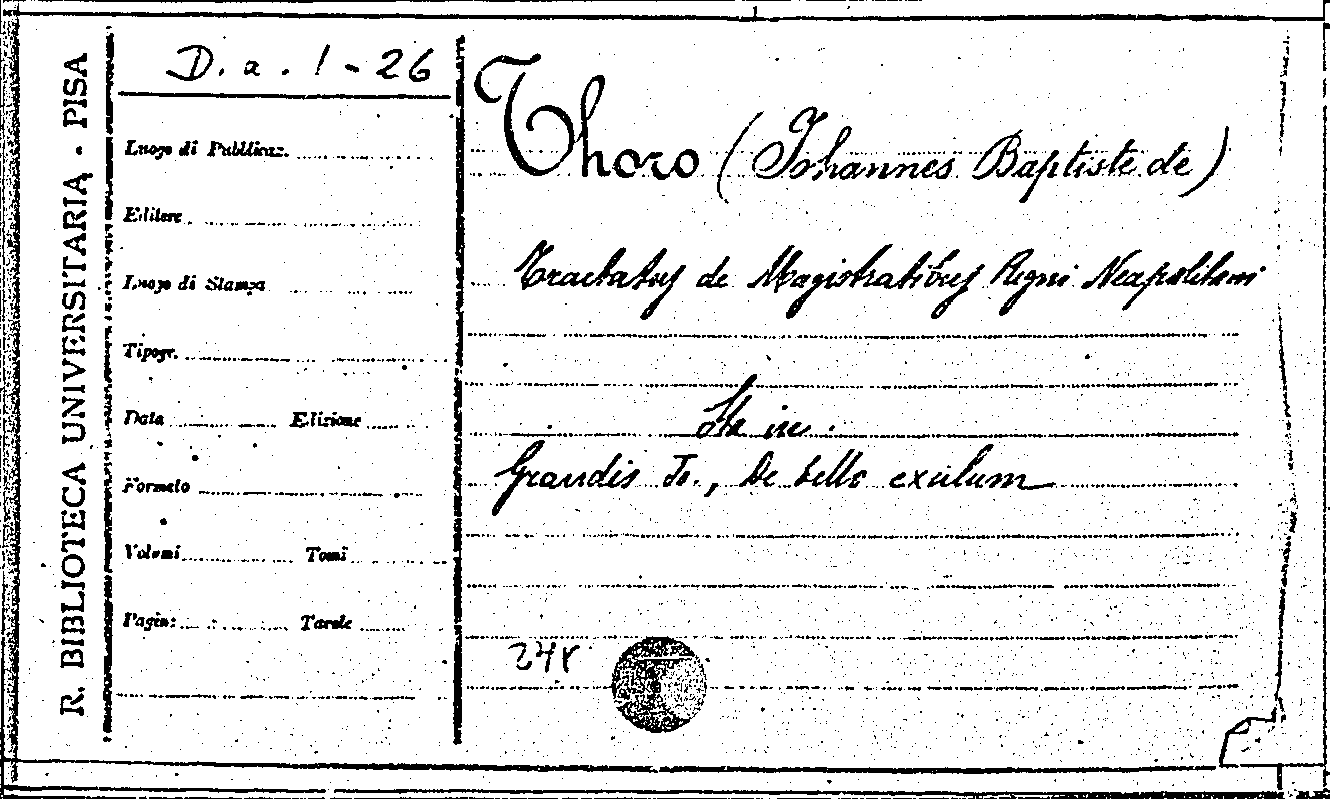 R. BIBLIOTECA UNIVERSITARIA - PISA
D. a. 1 - 26
Luogo di Pubblicaz.
Editore
Luogo di Stampa
Tipogr.
Data Edizione
Formato
Volumi Tomi
Pagine Tavole
Thoro (Johannes Baptiste de)
Tractatus de Magistratibus Regni Neapolitani
Sta in.
Grandis Jo., De bello exulum